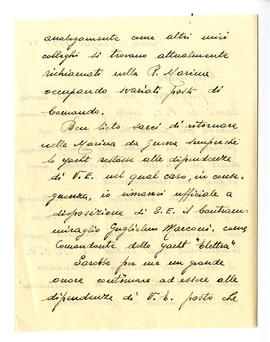 analogamente come altri miei
colleghi si trovano attualmente
richiamati nella R. Marina
occupando svariati posti di
Comando.
Ben lieto sarei di ritornare
nella Marina da Guerra sempreché
lo yacht restasse alle dipendenze
di V.E. nel qual caso, in conse-
guenza, io rimarrei ufficiale a
disposizione di S.E. il Contram-
miraglio Guglielmo Marconi, come
Comandante dello yacht "Elettra"
Sarebbe per me un grande
onore continuare ad essere alle
dipendenze di V.E. posto che